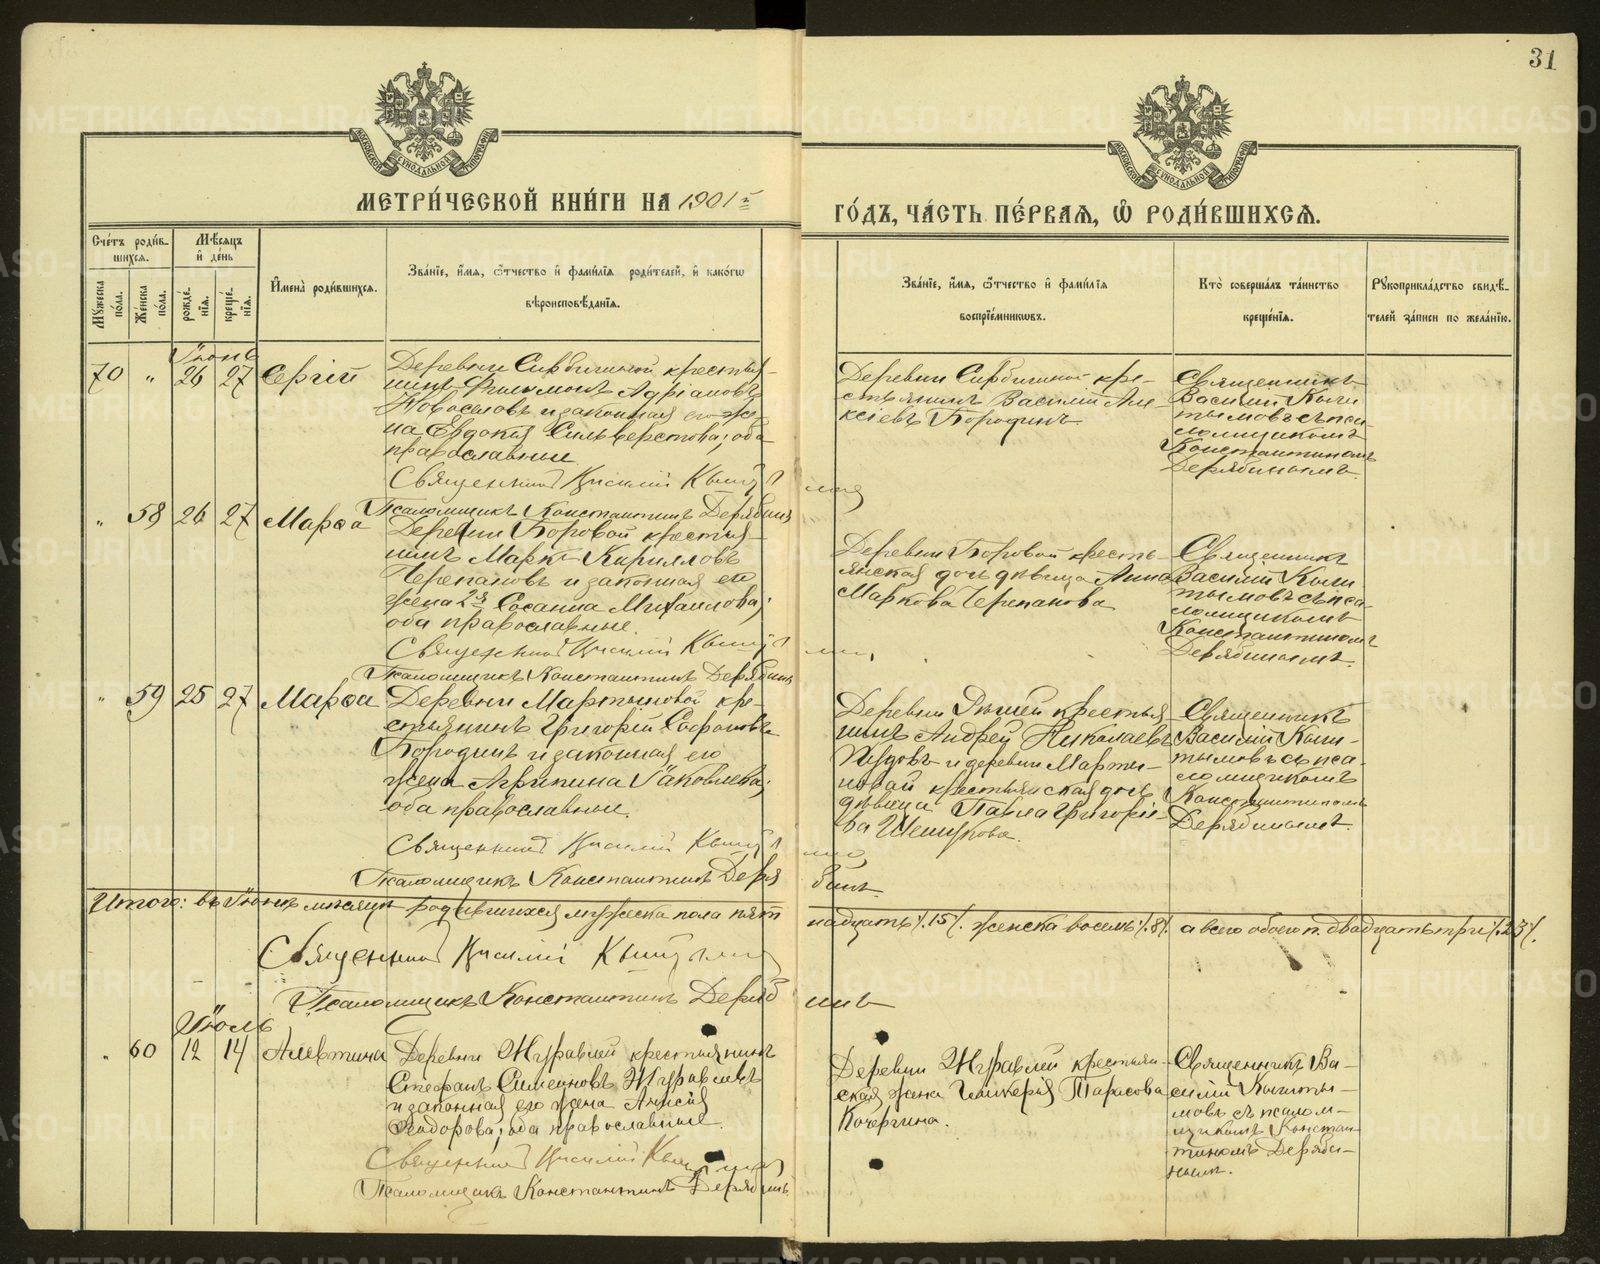 31
МОСКОВСКОЙ СУНОДАЛЬНОЙ ТИПОГРАФІИ
МОСКОВСКОЙ СУНОДАЛЬНОЙ ТИПОГРАФІИ
МЕТРИ́ЧЕСКОЙ КНИ́ГИ НА 1901 й
ГО́ДЪ, ЧА́СТЬ ПЕ́РВАЯ, Ѡ҆ РОДИ́ВШИХСЯ.
Сче́тъ роди́в-
шихся.
Мѣ́сяцъ
и҆ де́нь
Му́жеска по́ла.
Же́нска по́ла.
рожде́-
нїя.
креще́-
нїя.
И҆мена̀ роди́вшихся.
Зва́нїе, и҆́мя, ѻ҆́тчество и҆ фами́лїя роди́телей, и҆ како́гѡ
вѣроисповѣ́данїя.
Зва́нїе, и҆́мя, ѻ҆́тчество и҆ фами́лїя
воспрїе́мникѡвъ.
Кто̀ соверша́лъ та́инство
креще́нїя.
Рꙋкоприкла́дство свидѣ́-
телей за́писи по жела́нїю.
Іюнь
70 " 26 27 Сергій
Деревни крестья-
нинъ Филимонъ Адріановъ
Новоселовъ и законная его же-
на Евдокія Сильверстова; оба
православные.
Священникъ Василій Кыштымовъ
Псаломщикъ Константинъ Дерябинъ
Деревни кре-
стьянинъ Василій Але-
ксіевъ Бородинъ
Священникъ
Василій Кыш
тымовъ съ пса-
ломщикомъ
Константиномъ
Дерябинымъ.
" 58 26 27 Марѳа
Деревни Боровой крестья-
нинъ Маркъ Кирилловъ
Черепановъ и законная его
жена 2я Сосанна Михаилова;
оба православные.
Священникъ Василій Кыштымовъ
Псаломщикъ Константинъ Дерябинъ
Деревни Боровой кресть-
янская дочь дѣвица Анна
Маркова Черепанова
Священникъ
Василій Кыш
тымовъ съ пса-
ломщикомъ
Константиномъ
Дерябинымъ.
" 59 25 27 Марѳа
Деревни Мартыновой кре-
стьянинъ Григорій Софроновъ
Бородинъ и законная его
жена Агрипина Іаковлева;
оба православные.
Священникъ Василій Кыштымовъ
Псаломщикъ Константинъ Дерябинъ
Деревни крестья-
нинъ Андрей Николаевъ
и деревни Марты-
новой крестьянская дочь
дѣвица Павла Григоріе-
ва
Священникъ
Василій Кыш-
тымовъ съ пса-
ломщикомъ
Константиномъ
Дерябинымъ.
Итого: въ Іюнѣ мѣсяцѣ родившихся мужеска пола пятнадцать /.15/. женска восемь /.8/. а всего обоего п. двадцать три /.23/.
Священникъ Василій Кыштымовъ
Псаломщикъ Константинъ Дерябинъ
Іюль
" 60 12 14 Алевтина
Деревни Журавлей крестьянинъ
Стефанъ Симеоновъ Журавлевъ
и законная его жена Анисія
Ѳеодорова; оба православные.
Священникъ Василій Кыштымовъ
Псаломщикъ Константинъ Дерябинъ
Деревни Журавлей крестьян-
ская жена Гликерія Тарасова
Кочергина.
Священникъ Ва-
силій Кышты-
мовъ съ псалом-
щикомъ Констан-
тиномъ Деряби-
нымъ.
METRIKI.GASO-URAL.RU